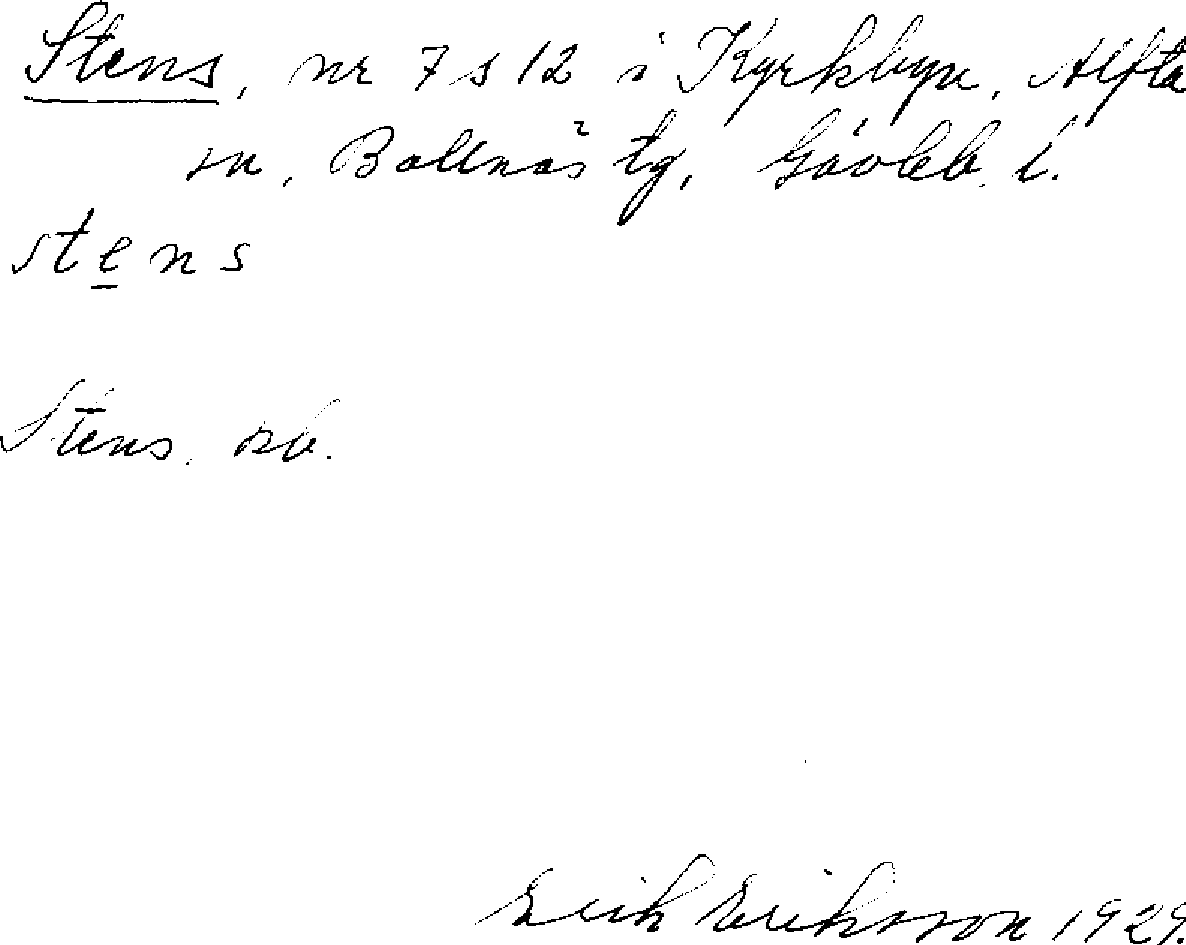 Stens, nr 7 s 12 i Kyrkbyn, Alfta
sn, Bollnäs tg, Gävleb. l.
stens
Stens. sb.
Erik Eriksson 1929.